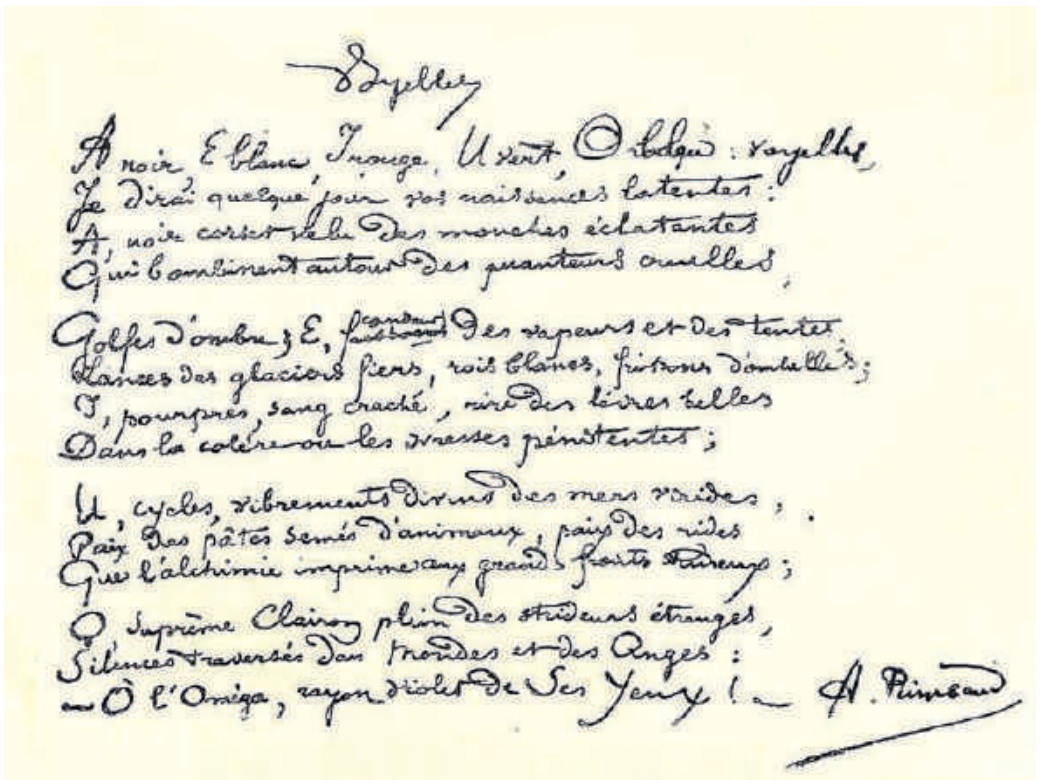 Voyelles
A noir, E blanc, I rouge, U vert, O bleu : voyelles,
Je dirai quelque jour vos naissances latentes :
A, noir corset velu des mouches éclatantes
Qui bombinent autour des puanteurs cruelles,
Golfes d'ombre ; E, candeurs des vapeurs et des tentes,
Lances des glaciers fiers, rois blancs, frissons d'ombelles ;
I, pourpres, sang craché, rire des lèvres belles
Dans la colère ou les ivresses pénitentes ;
U, cycles, vibrements divins des mers virides,
Paix des pâtis semés d'animaux, paix des rides
Que l'alchimie imprime aux grands fronts studieux ;
O, suprême Clairon plein des strideurs étranges,
Silences traversés des Mondes et des Anges :
— O l'Oméga, rayon violet de Ses Yeux ! — A. Rimbaud